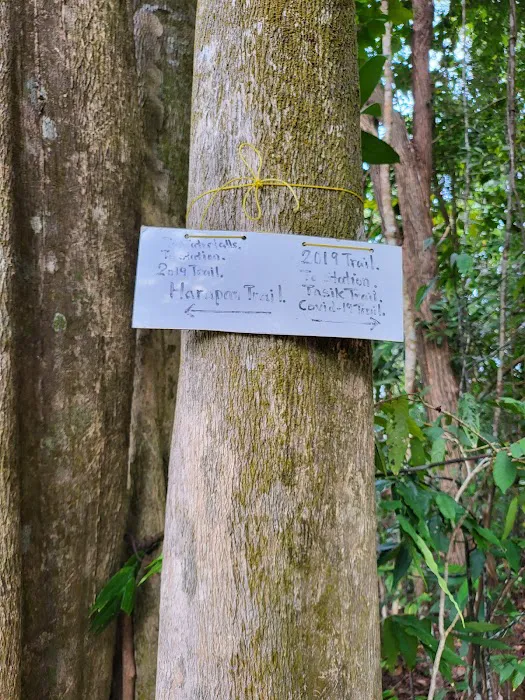 To waterfalls.
To station.
2019 Trail.
Harapan Trail.
2019 Trail.
To station.
Tasik Trail.
Covid-19 Trail.